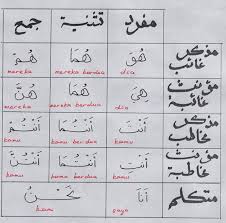 مفرد تثنية جمع
مذكر غائب هُوَ هُمَا هُمْ
dia mereka berdua mereka
مؤنث غائبة هِيَ هُمَا هُنَّ
dia mereka berdua mereka
مذكر مخاطب أَنْتَ أَنْتُمَا أَنْتُمْ
kamu kamu berdua kamu
مؤنث مخاطبة أَنْتِ أَنْتُمَا أَنْتُنَّ
kamu kamu berdua kamu
متكلم أَنَا نَحْنُ
saya kami